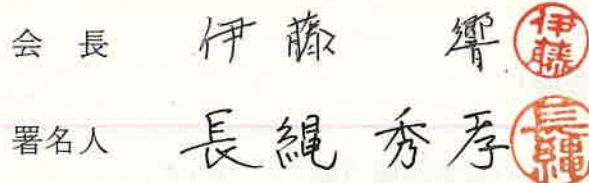 会長 伊藤 響 伊藤
署名人 長縄 秀孝 長縄